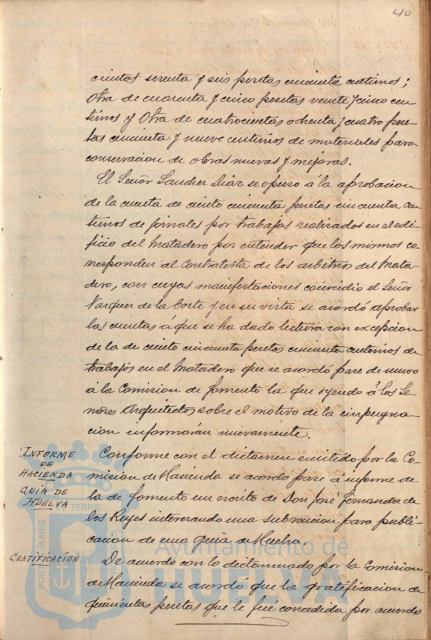 40
cientas setenta y seis pesetas cincuenta centimos;
Otra de cuarenta y cinco pesetas veinte y cinco cen
timos y Otra de cuatrocientas ochenta y cuatro pese
tas cincuenta y nueve centimos de materiales para
conservacion de obras nuevas y mejoras.
El Señor Sanchez Diaz se opuso á la aprobacion
de la cuenta de ciento cincuenta pesetas cincuenta cen
timos de jornales por trabajos realizados en el edi
ficio del Matadero por entender que los mismos co
rresponden al Contratista de los arbitrios del Mata
dero, con cuyas manifestaciones coincidio el Señor
Vazquez de la Corte y en su vista se acordó aprobar
las cuentas á que se ha dado lectura con excepcion
de la de ciento cincuenta pesetas cincuenta centimos de
trabajos en el Matadero que se acordó pase de nuevo
á la Comision de fomento la que oyendo á los Se
ñores Arquitectos sobre el motivo de la impugna
cion informarán nuevamente.
INFORME
DE
HACIENDA
GUIA DE
HUELVA
Conforme con el dictamen emitido por la Co
mision de Hacienda se acordó pase á informe de
la de fomento un escrito de Don José Fernandez de
los Reyes interesando una subvencion para publi
cacion de una Guia de Huelva.
GRATIFICACION
De acuerdo con lo dictaminado por la Comision
de Hacienda se acordó que la gratificacion de
quinientas pesetas que le fué concedida por acuerdo
PORTUS MARIS
TERRAE
Ayuntamiento de
HUELVA